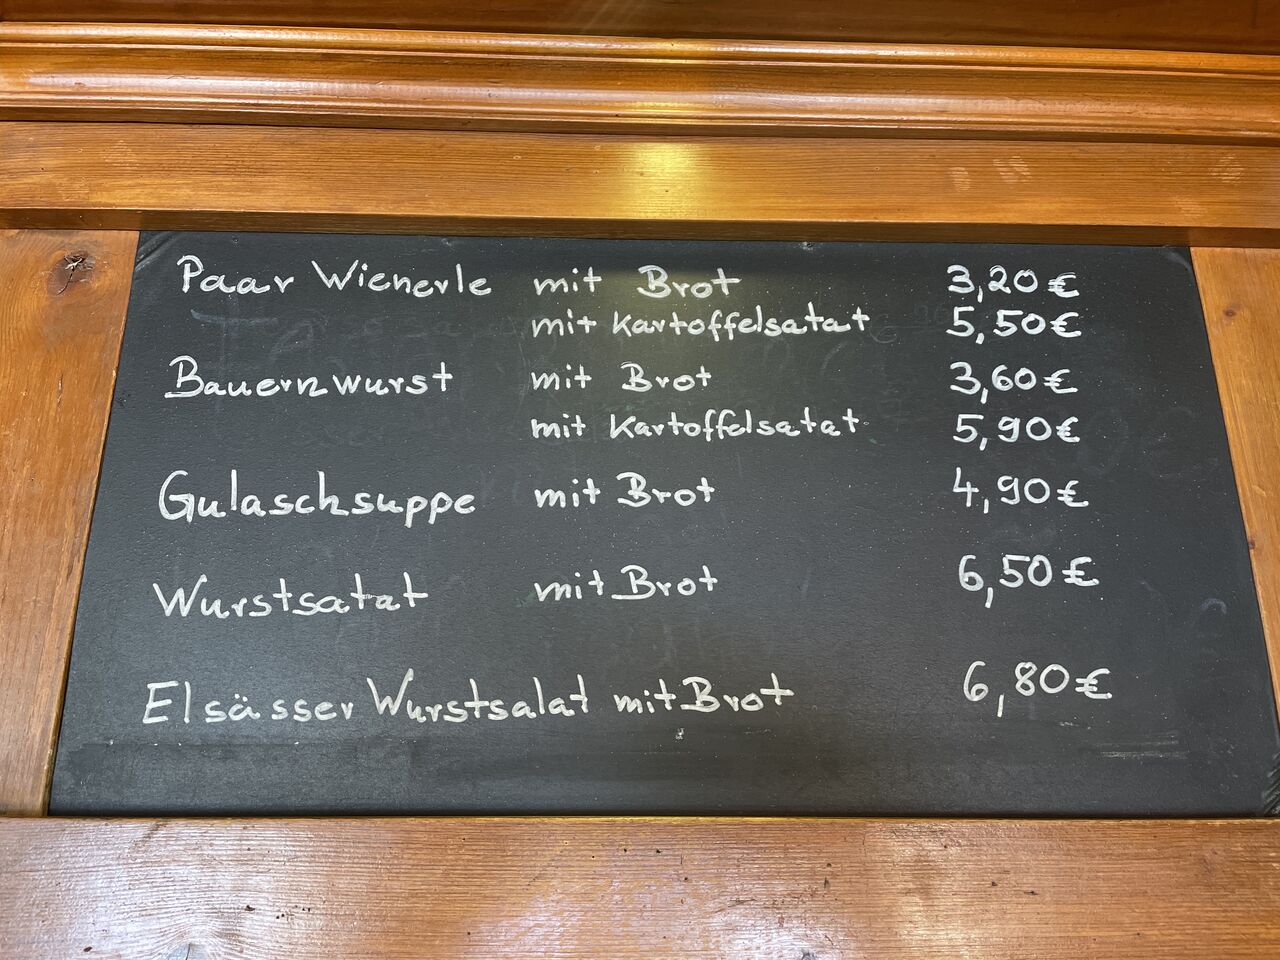 Paar Wienerle mit Brot 3,20€
mit Kartoffelsalat 5,50€
Bauernwurst mit Brot 3,60€
mit Kartoffelsalat 5,90€
Gulaschsuppe mit Brot 4,90€
Wurstsalat mit Brot 6,50€
Elsässer Wurstsalat mit Brot 6,80€